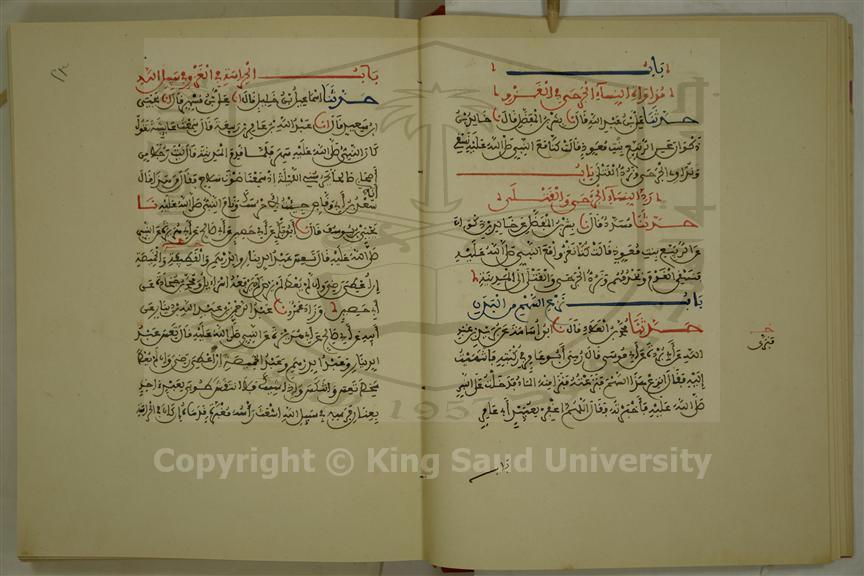 باب
مداواة النساء الجرحى في الغزو
حدثنا علي بن عبد الله قال نا بشر بن المفضل قال نا خالد بن
ذكوان عن الربيع بنت معوذ قالت كنا مع النبي صلى الله عليه نسقي
ونداوي الجرحى ونرد القتلى باب
رد النساء الجرحى والقتلى
حدثنا مسدد قال نا بشر بن المفضل عن خالد بن ذكوان
عن الربيع بنت معوذ قالت كنا نغزو مع النبي صلى الله عليه
فنسقي القوم ونخدمهم ونرد الجرحى والقتلى إلى المدينة
باب نزع السهم من البدن
حدثنا محمد بن العلاء قال نا أبو أسامة عن بريد بن عبد
الله عن أبي بردة عن أبي موسى قال رمي أبو عامر في ركبته فانتهيت
إليه فقال انزع هذا السهم فنزعته فنزا منه الماء فدخلت على النبي
صلى الله عليه فأخبرته فقال اللهم اغفر لعبيد أبي عامر
باب
باب الحراسة في الغزو في سبيل الله
حدثنا إسماعيل بن خليل قال أنا علي بن مسهر قال نا يحيى
بن سعيد قال نا عبد الله بن عامر بن ربيعة قال سمعت عائشة تقول
كان النبي صلى الله عليه سهر فلما قدم المدينة قال ليت رجلا من
أصحابي صالحا يحرسني الليلة إذ سمعنا صوت سلاح فقال من هذا قال
سعد بن أبي وقاص جئت لأحرسك ونام النبي صلى الله عليه نا
يحيى بن يوسف قال نا أبو بكر عن أبي حصين عن أبي صالح عن أبي هريرة عن النبي
صلى الله عليه قال تعس عبد الدينار والدرهم والقطيفة والخميصة
إن أعطي رضي وإن لم يعط لم يرض لم يرفعه إسرائيل ومحمد بن جحادة عن
أبي حصين وزاد عمرو نا عبد الرحمن بن عبد الله بن دينار عن
أبيه عن أبي صالح عن أبي هريرة عن النبي صلى الله عليه قال تعس عبد
الدينار وعبد الدرهم وعبد الخميصة إن أعطي رضي وإن لم يعط
سخط تعس وانتكس وإذا شيك فلا انتقش طوبى لعبد آخذ
بعنان فرسه في سبيل الله أشعث رأسه مغبرة قدماه إن كان في الحراسة
Copyright © King Saud University
1957